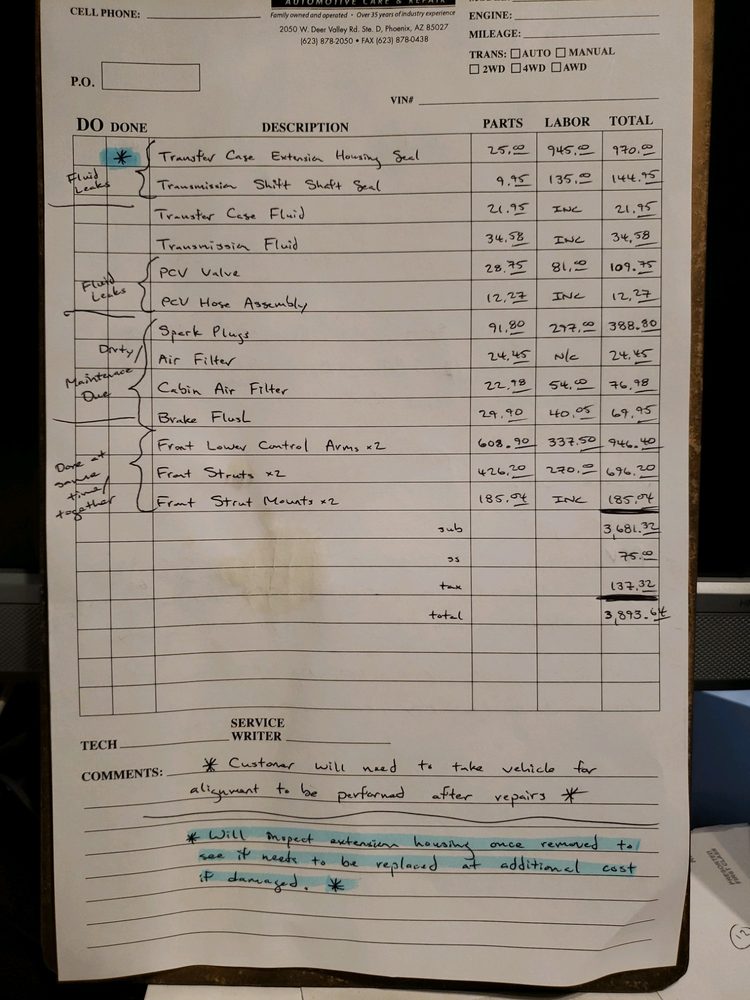 AUTOMOTIVE CARE & REPAIR
CELL PHONE:
Family owned and operated • Over 35 years of industry experience
2050 W. Deer Valley Rd. Ste. D, Phoenix, AZ 85027
(623) 878-2050 • FAX (623) 878-0438
ENGINE:
MILEAGE:
TRANS: ☐ AUTO ☐ MANUAL
☐ 2WD ☐ 4WD ☐ AWD
P.O.
VIN#
DO DONE DESCRIPTION PARTS LABOR TOTAL
* Transfer Case Extension Housing Seal 25.00 945.00 970.00
Fluid Leaks
Transmission Shift Shaft Seal 9.95 135.00 144.95
Transfer Case Fluid 21.95 INC 21.95
Transmission Fluid 34.58 INC 34.58
PCV Valve 28.75 81.00 109.75
Fluid Leaks
PCV Hose Assembly 12.27 INC 12.27
Spark Plugs 91.80 297.00 388.80
Dirty/
Air Filter 24.45 N/C 24.45
Maintenace
Due
Cabin Air Filter 22.98 54.00 76.98
Brake Flush 29.90 40.05 69.95
Front Lower Control Arms x2 608.90 337.50 946.40
Done at
same
time/
together
Front Struts x2 426.20 270.00 696.20
Front Strut Mounts x2 185.04 INC 185.04
sub 3,681.32
ss 75.00
tax 137.32
total 3,893.64
TECH
SERVICE
WRITER
COMMENTS: * Customer will need to take vehicle for
alignment to be performed after repairs *
* Will inspect extension housing once removed to
see if needs to be replaced at additional cost
if damaged. *
PRESORTED
FIRST CLASS
12